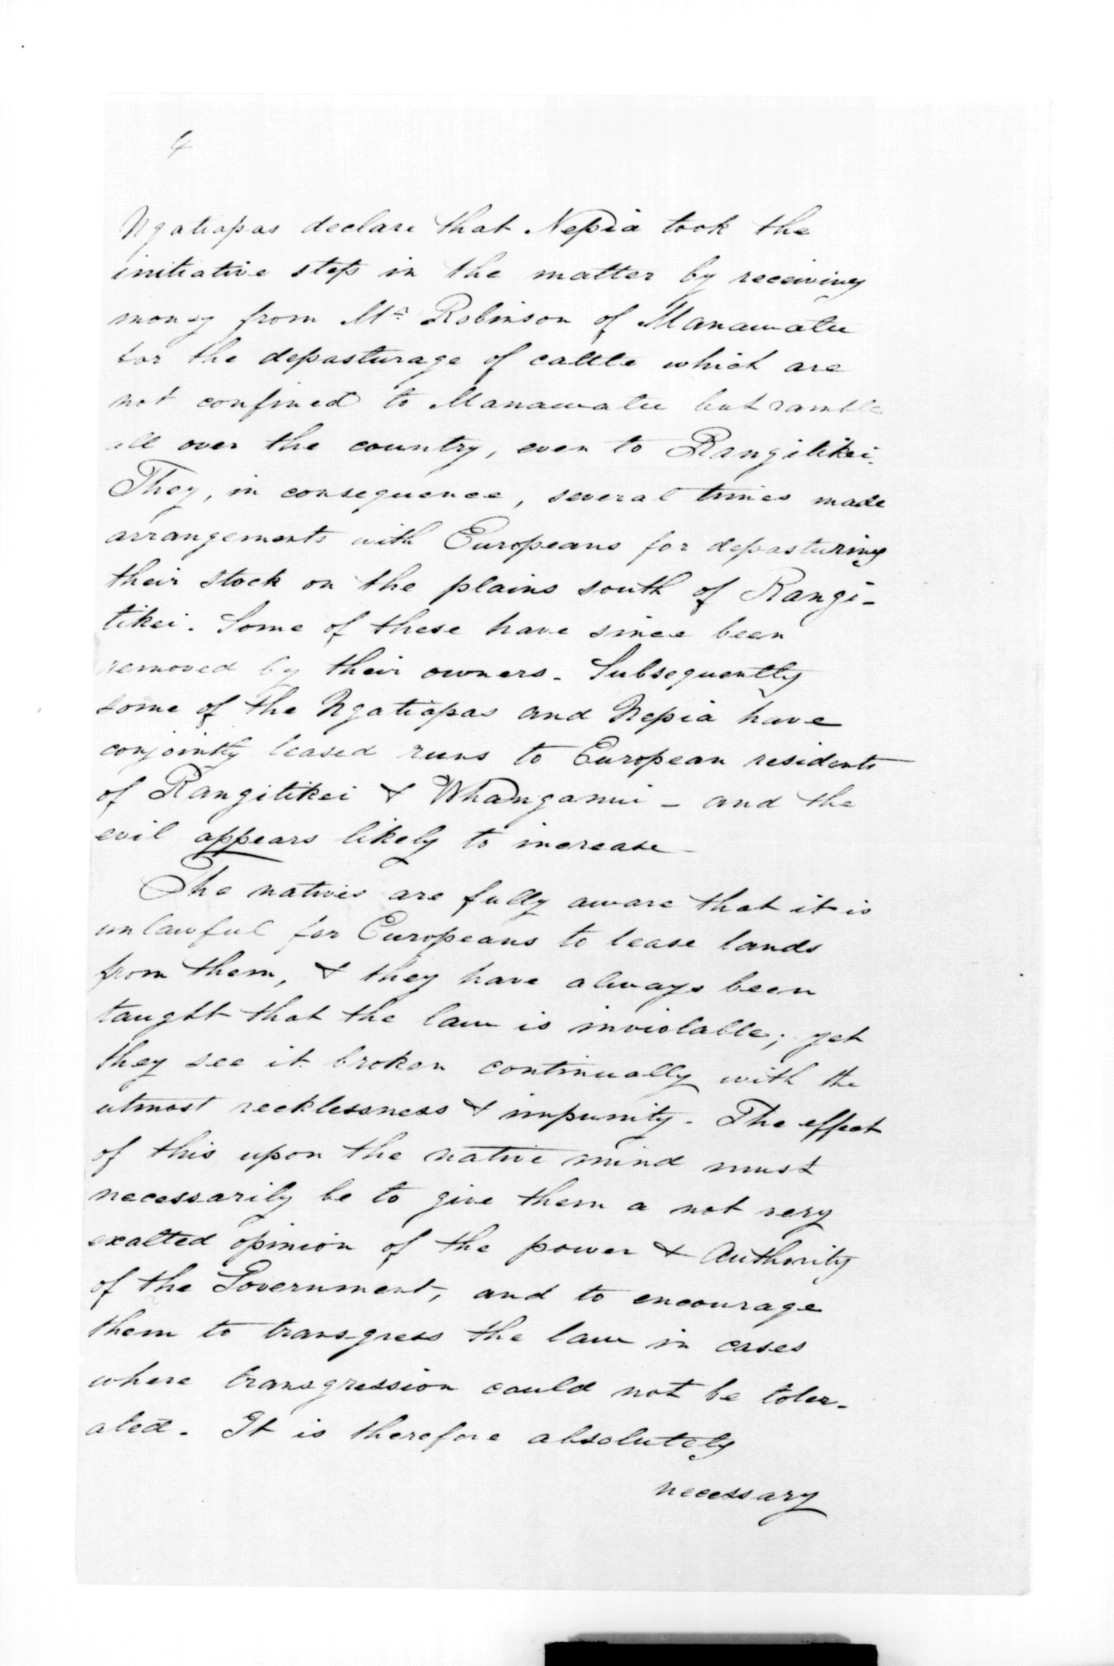 4
Ngatiapas declare that Nepia took the
initiative step in the matter by receiving
money from Mr Robinson of Manawatu
for the depasturage of cattle which are
not confined to Manawatu but ramble
all over the country, even to Rangitikei.
They, in consequence, several times made
arrangements with Europeans for depasturing
their stock on the plains south of Rangi-
tikei. Some of these have since been
removed by their owners. Subsequently
some of the Ngatiapas and Nepia have
conjointly leased runs to European residents
of Rangitikei & Whanganui - and the
evil appears likely to increase -
The natives are fully aware that it is
unlawful for Europeans to lease lands
from them, & they have always been
taught that the law is inviolable; yet
they see it broken continually with the
utmost recklessness & impunity. The effect
of this upon the native mind must
necessarily be to give them a not very
exalted opinion of the power & Authority
of the Government, and to encourage
them to transgress the law in cases
where transgression could not be toler-
ated. It is therefore absolutely
necessary